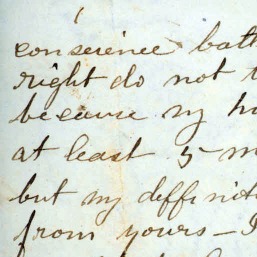 conscience bath
right do not t
because my h
at least 5 m
but my deffinit
from yours – I